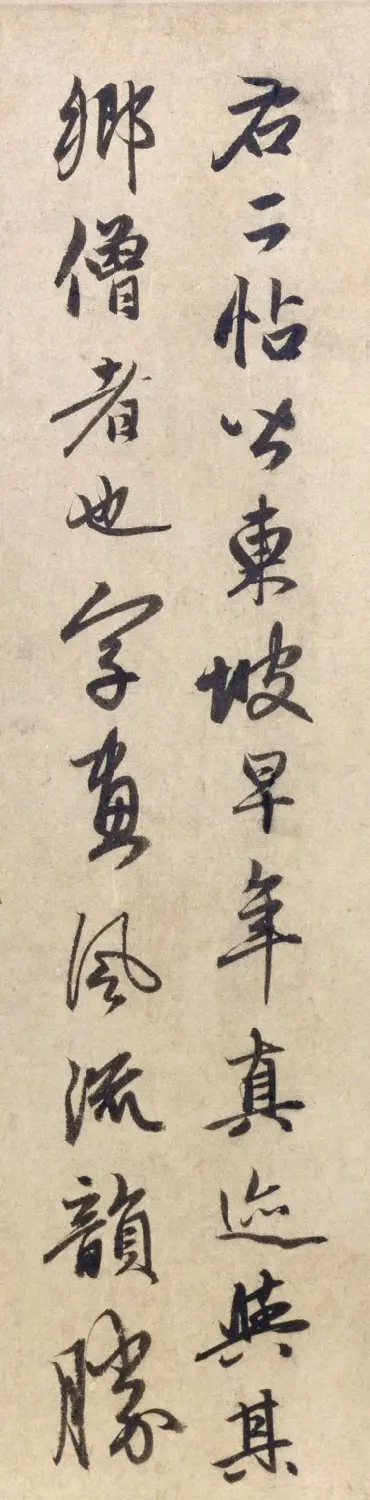 君二帖皆東坡早年真迹與其
鄉僧者也字畫風流韻勝